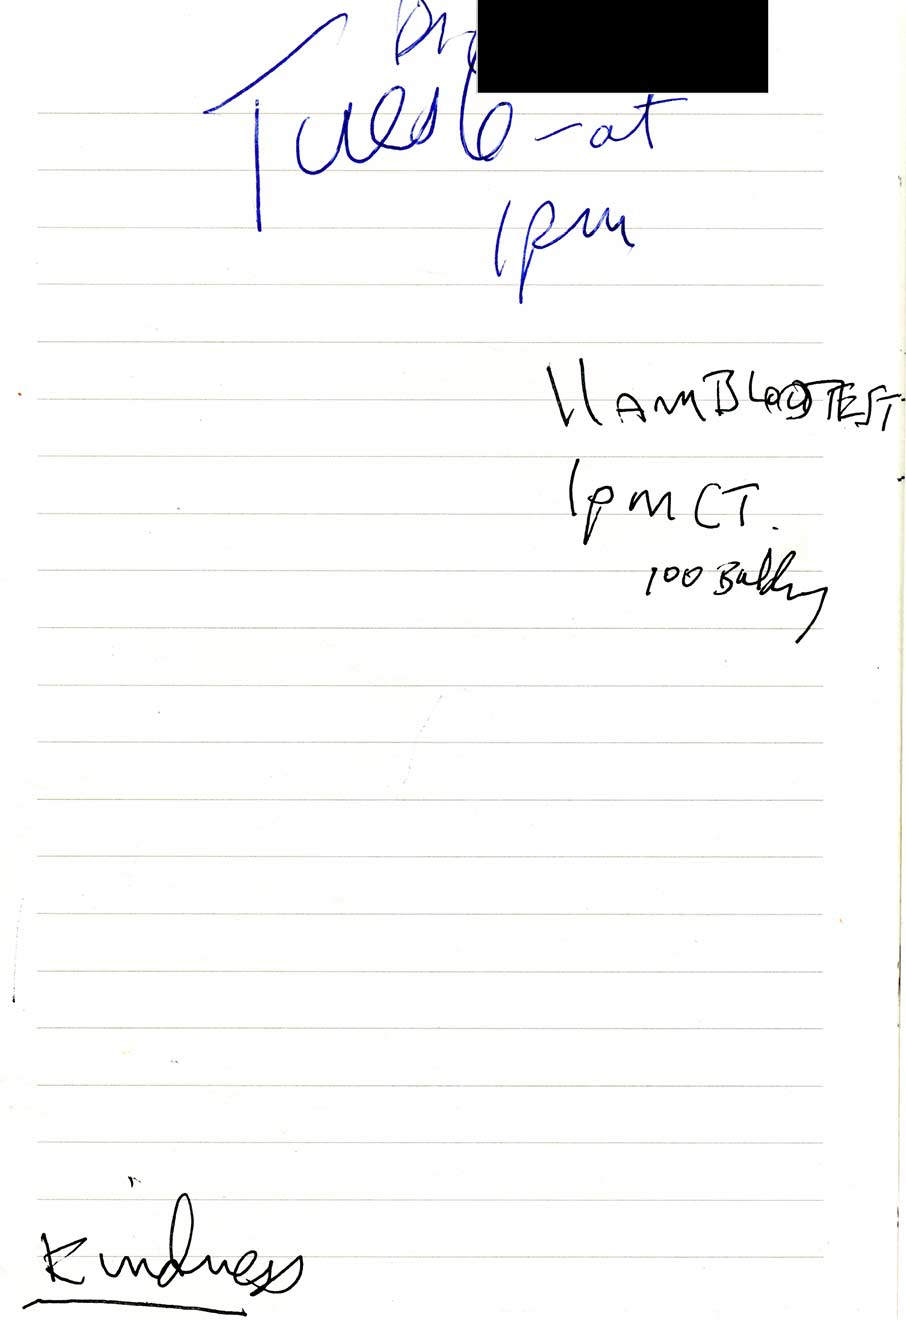 Dr
Tues 6 - at
1pm
11 AM BLOOD TEST
1pm CT.
100 Building
Kindness